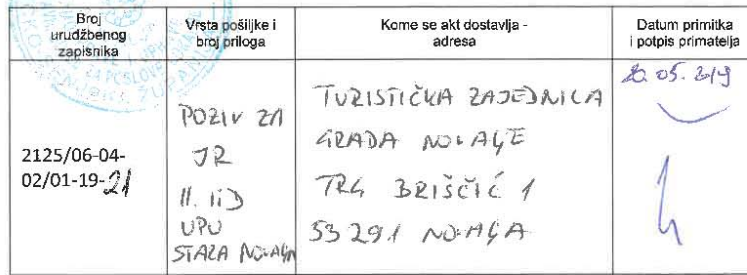 Broj
urudžbenog
zapisnika
Vrsta pošiljke i
broj priloga
Kome se akt dostavlja -
adresa
Datum primitka
i potpis primatelja
2125/06-04-
02/01-19-21
POZIV ZA
JR
II. IID
UPU
STARA NOVALJA
TURISTIČKA ZAJEDNICA
GRADA NOVALJE
TRG BRIŠČIĆ 1
53291 NOVALJA
20.05.2019